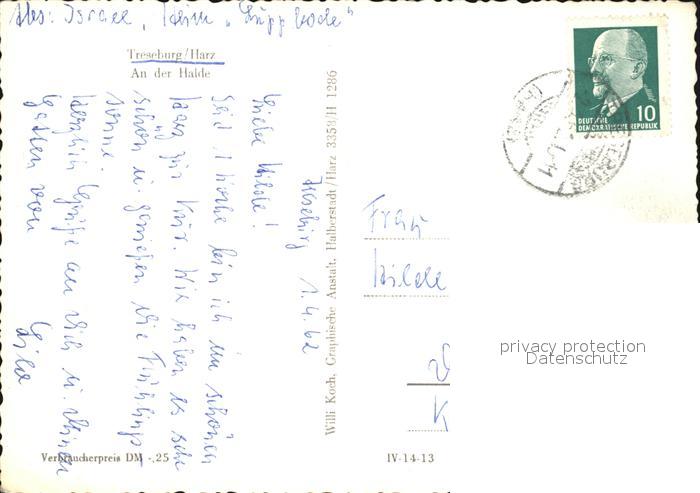 Abs: Israel, Heim „Luppbode"
Treseburg/Harz
An der Halde
Treseburg 1.4.62
Liebe Hilde!
Seit 1 Woche bin ich im schönen
Harz zur Kur. Wir haben es sehr
schön u. genießen die Frühlings-
sonne.
Herzliche Grüße an Dich u. Deinen
Gatten von
Willi Koch, Graphische Anstalt, Halberstadt/Harz 3358/H 1286
Verbraucherpreis DM -.25
IV-14-13
Frau
Hilde
K
DEUTSCHE
DEMOKRATISCHE REPUBLIK
10
privacy protection
Datenschutz